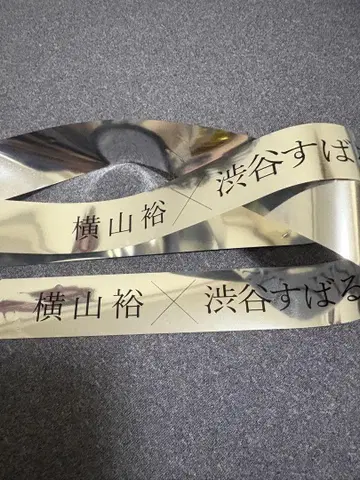 横山裕×渋谷すばる
横山裕×渋谷すばる